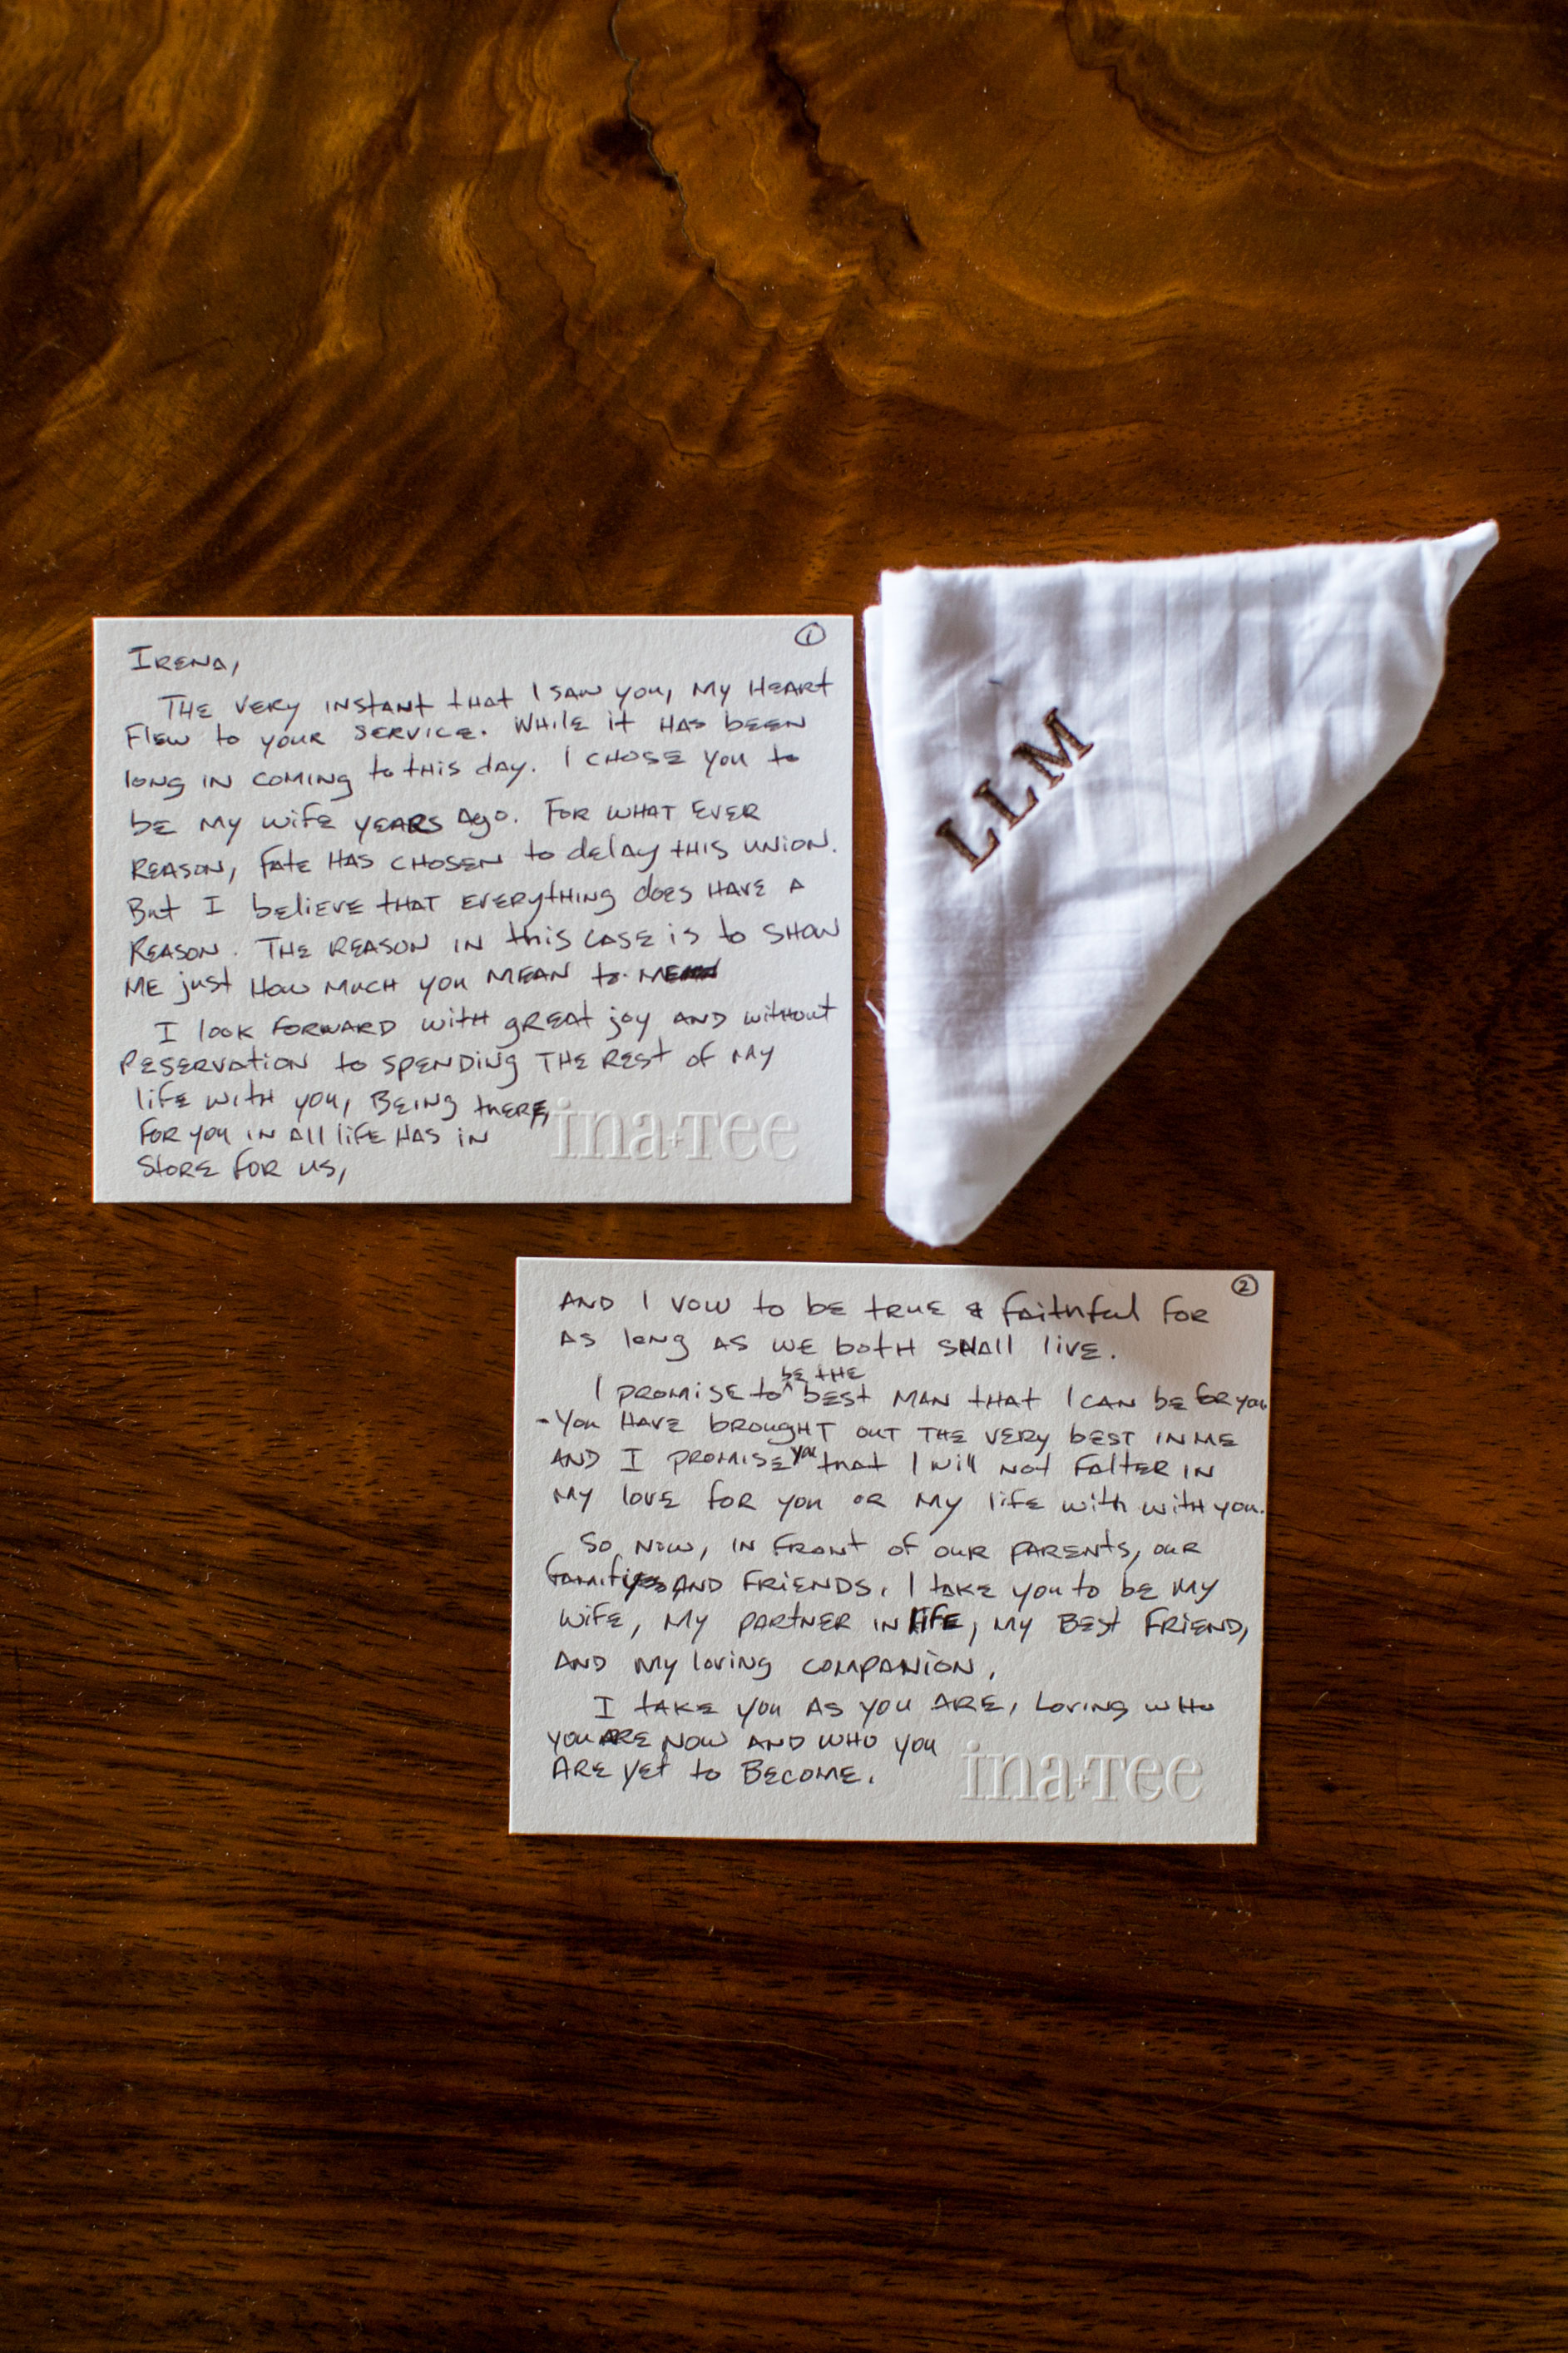 ①
IRENA,
THE VERY INSTANT THAT I SAW YOU, MY HEART
FLEW TO YOUR SERVICE. WHILE IT HAS BEEN
LONG IN COMING TO THIS DAY. I CHOSE YOU TO
BE MY WIFE YEARS AGO. FOR WHAT EVER
REASON, FATE HAS CHOSEN TO DELAY THIS UNION.
BUT I BELIEVE THAT EVERYTHING DOES HAVE A
REASON. THE REASON IN THIS CASE IS TO SHOW
ME JUST HOW MUCH YOU MEAN TO ME
I LOOK FORWARD WITH GREAT JOY AND WITHOUT
RESERVATION TO SPENDING THE REST OF MY
LIFE WITH YOU, BEING THERE,
FOR YOU IN ALL LIFE HAS IN
STORE FOR US,
ina+Tee
LLM
②
AND I VOW TO BE TRUE & FAITHFUL FOR
AS LONG AS WE BOTH SHALL LIVE.
I PROMISE TO BE THE BEST MAN THAT I CAN BE FOR YOU
- YOU HAVE BROUGHT OUT THE VERY BEST IN ME
AND I PROMISE YOU THAT I WILL NOT FALTER IN
MY LOVE FOR YOU OR MY LIFE WITH WITH YOU.
SO NOW, IN FRONT OF OUR PARENTS, OUR
FAMILIES AND FRIENDS. I TAKE YOU TO BE MY
WIFE, MY PARTNER IN LIFE, MY BEST FRIEND,
AND MY LOVING COMPANION.
I TAKE YOU AS YOU ARE, LOVING WHO
YOU ARE NOW AND WHO YOU
ARE YET TO BECOME.
ina+Tee